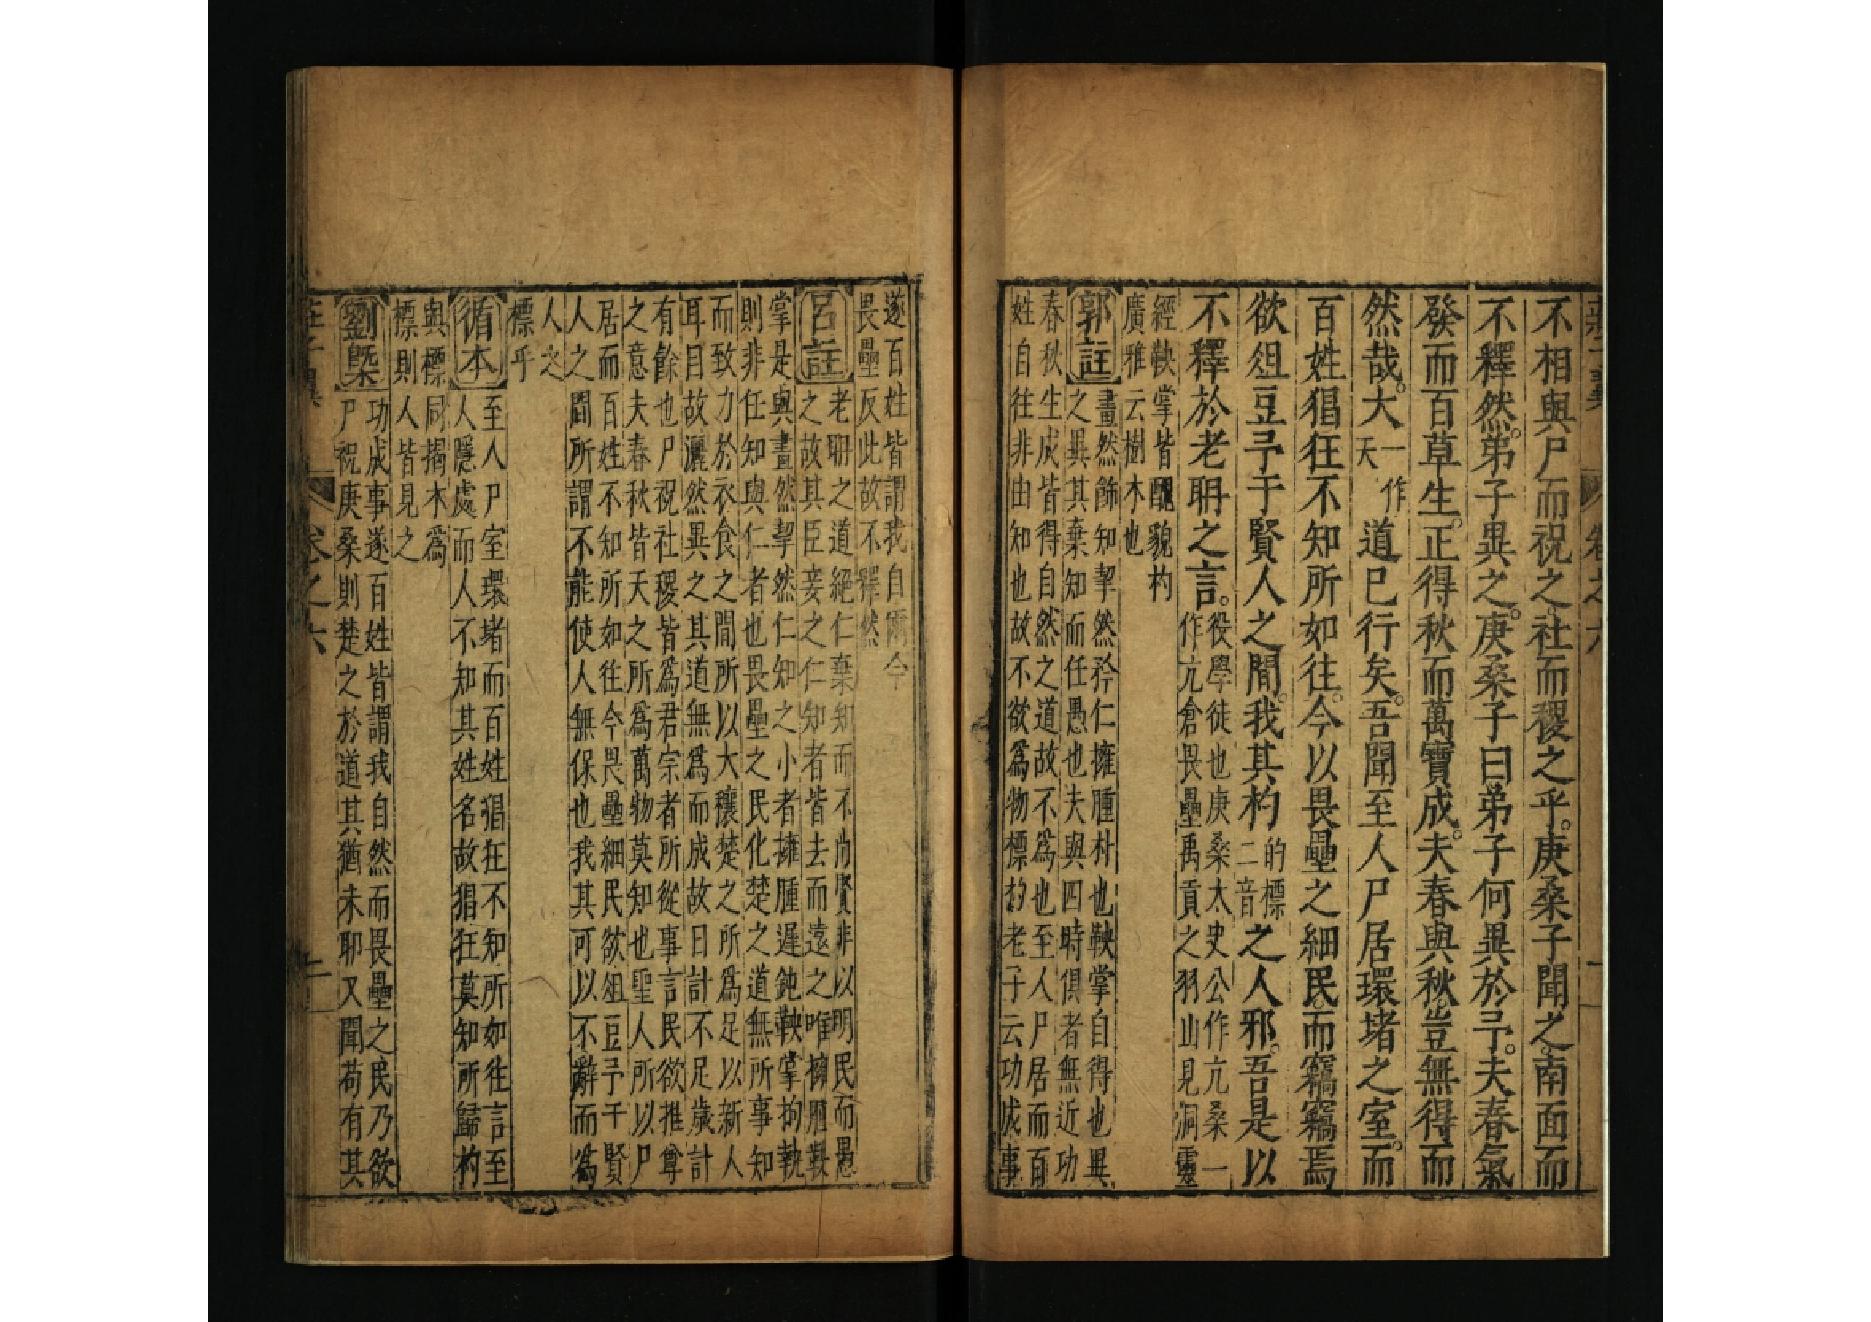 莊子翼　卷之六　二
不相與尸而祝之社而稷之乎庚桑子聞之南面而
不釋然弟子異之庚桑子曰弟子何異於予夫春氣
發而百草生正得秋而萬寶成夫春與秋豈無得而
然哉大一作天道已行矣吾聞至人尸居環堵之室而
百姓猖狂不知所如往今以畏壘之細民而竊竊焉
欲俎豆予于賢人之間我其杓的標二音之人邪吾是以
不釋於老聃之言役學徒也庚桑太史公作亢桑一
作亢倉畏壘禹貢之羽山見洞靈
經鞅掌皆醜貌杓
廣雅云樹木也
郭註
畫然飾知挈然矜仁擁腫朴也鞅掌自得也異
之異其棄知而任愚也夫與四時俱者無近功
春秋生成皆得自然之道故不為也至人尸居而百
姓自往非由知也故不欲為物標杓老子云功成事
遂百姓皆謂我自爾今
畏壘反此故不釋然
呂註
老聃之道絕仁棄知而不尚賢非以明民而愚
之故其臣妾之仁知者皆去而遠之唯擁腫鞅
掌是與畫然挈然仁知之小者擁腫遲鈍鞅掌拘執
則非任知與仁者也畏壘之民化楚之道無所事知
而致力於衣食之間所以大穰楚之所為足以新人
耳目故灑然異之其道無為而成故日計不足歲計
有餘也尸祝社稷皆為君宗者所從事言民欲推尊
之意夫春秋皆天之所為萬物莫知也聖人所以尸
居而百姓不知所如往今畏壘細民欲俎豆予于賢
人之間所謂不能使人無保也我其可以不辭而為
人之
標乎
循本
至人尸室環堵而百姓猖狂不知所如往言至
人隱處而人不知其姓名故猖狂莫知所歸杓
與標同揭木為
標則人皆見之
劉槩
功成事遂百姓皆謂我自然而畏壘之民乃欲
尸祝庚桑則楚之於道其猶未耶又聞苟有其
莊子翼　卷之六　二